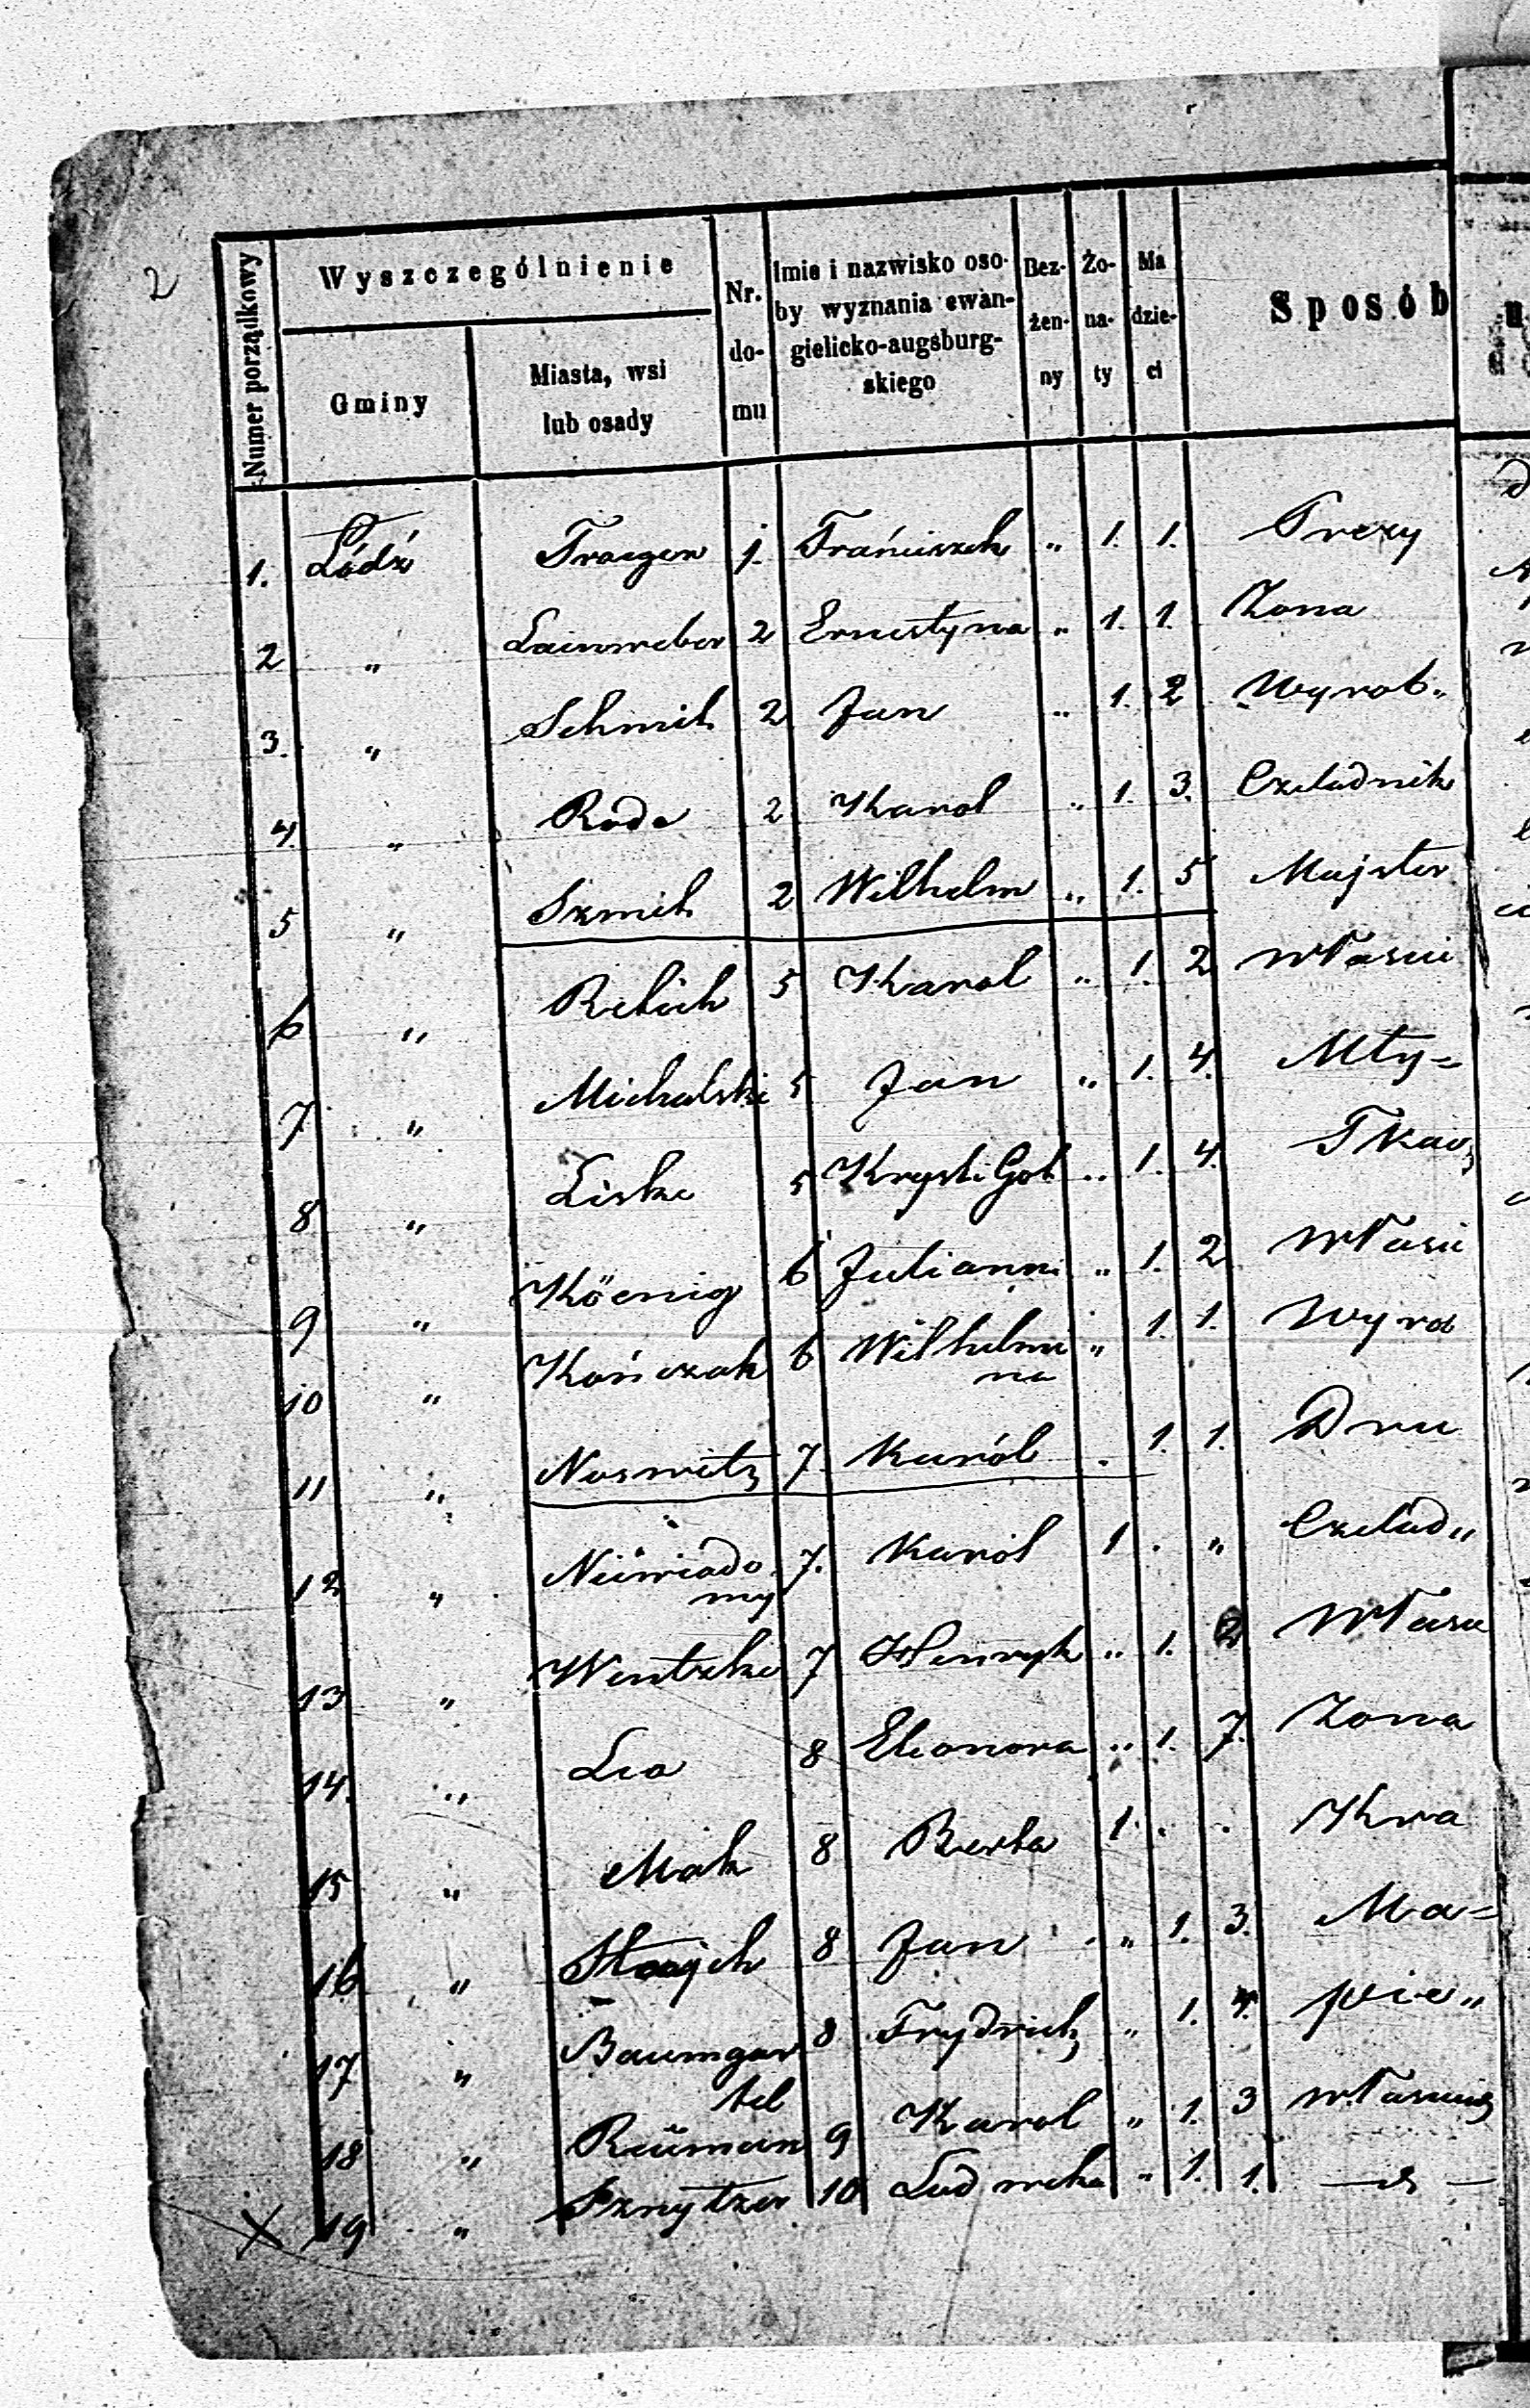 2
Numer porządkowy
Wyszczególnienie
Gminy
Miasta, wsi
lub osady
Nr.
do-
mu
Imie i nazwisko oso-
by wyznania ewan-
gielicko-augsburg-
skiego
Bez-
żen-
ny
Żo-
na-
ty
Ma
dzie-
ci
Sposób
1. Łódź Traeger 1. Frańciszek " 1. 1. Przy
2 " Lainweber 2 Ernestyna " 1. 1. Żona
3. " Schmit 2 Jan " 1. 2 Wyrob"
4. " Rode 2 Karol " 1. 3. Czeladnik
5 " Szmit 2 Wilhelm " 1. 5 Majster
6 " 5 Karol " 1. 2 Właści
7 " Michalski 5 Jan " 1. 4. Mły=
8 " Liske 5 Kryst. Got " 1. 4. Tkacz
9 " Köenig 6 Julianna " 1. 2 Właści
10 " Kończak 6 Wilhelmi " 1. 1. Wyrob
na
11 " Noswitz 7. Karól . 1. 1. Dru
12 " Niewiado 7. Karól 1 . " Czelad"
my
13 " Wentzke 7 Henryk " 1. 2 Właśc
14. " Leo 8 Eleonora " 1. 7. Żona
15 " Mak 8 Berta 1. . . Kwa
16 " 8 Jan " 1. 3. Ma=
17 " Baumgar 8 Frydrich " 1. 4. pie"
tel
18 " Reüman 9 Karol " 1. 3
X 19 " Sznytzer 10 Ludwika " 1. 1.